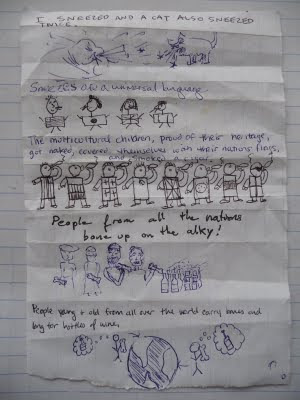 I SNEEZED AND A CAT ALSO SNEEZED
TWICE.
Sneezes are a universal language.
The multicultural children, proud of their heritage,
got naked, covered themselves with their nations flags,
and smoked a cigar.
People from all the nations
bone up on the alky!
People young & old from all over the world carry bones and
long for bottles of wine.